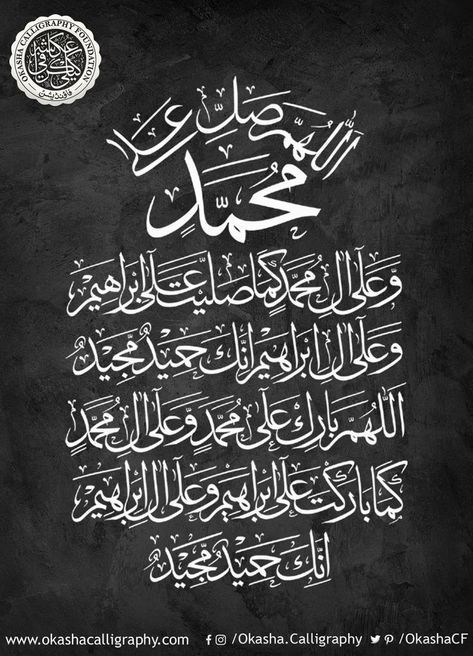 OKASHA CALLIGRAPHY FOUNDATION
فاؤنڈیشن
اَللّٰهُمَّ صَلِّ عَلٰى
مُحَمَّدٍ
وَّعَلٰٓى اٰلِ مُحَمَّدٍ كَمَا صَلَّيْتَ عَلٰٓى اِبْرَاهِيْمَ
وَعَلٰٓى اٰلِ اِبْرَاهِيْمَ اِنَّكَ حَمِيْدٌ مَّجِيْدٌ
اَللّٰهُمَّ بَارِكْ عَلٰى مُحَمَّدٍ وَّعَلٰٓى اٰلِ مُحَمَّدٍ
كَمَا بَارَكْتَ عَلٰٓى اِبْرَاهِيْمَ وَعَلٰٓى اٰلِ اِبْرَاهِيْمَ
اِنَّكَ حَمِيْدٌ مَّجِيْدٌ
www.okashacalligraphy.com /Okasha.Calligraphy /OkashaCF